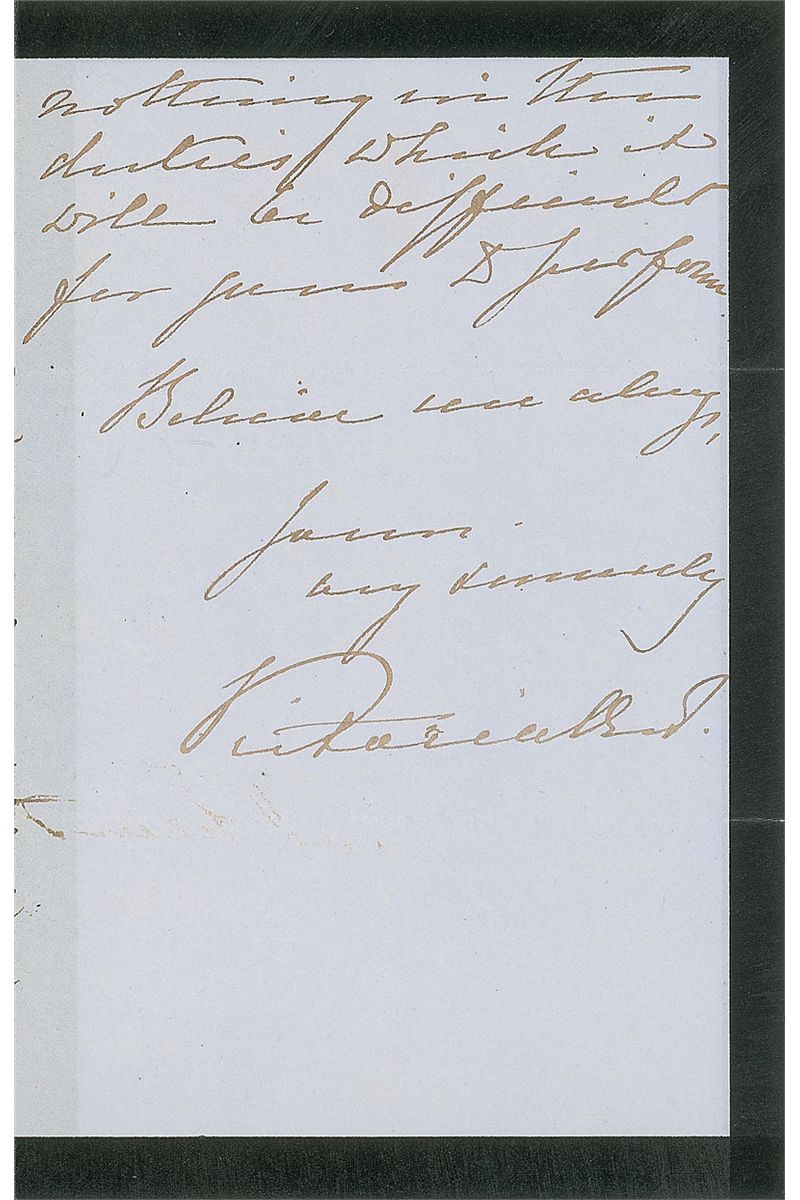 nothing in the
duties which it
will be difficult
for you to perform.
Believe me always,
Yours
very sincerely
Victoria